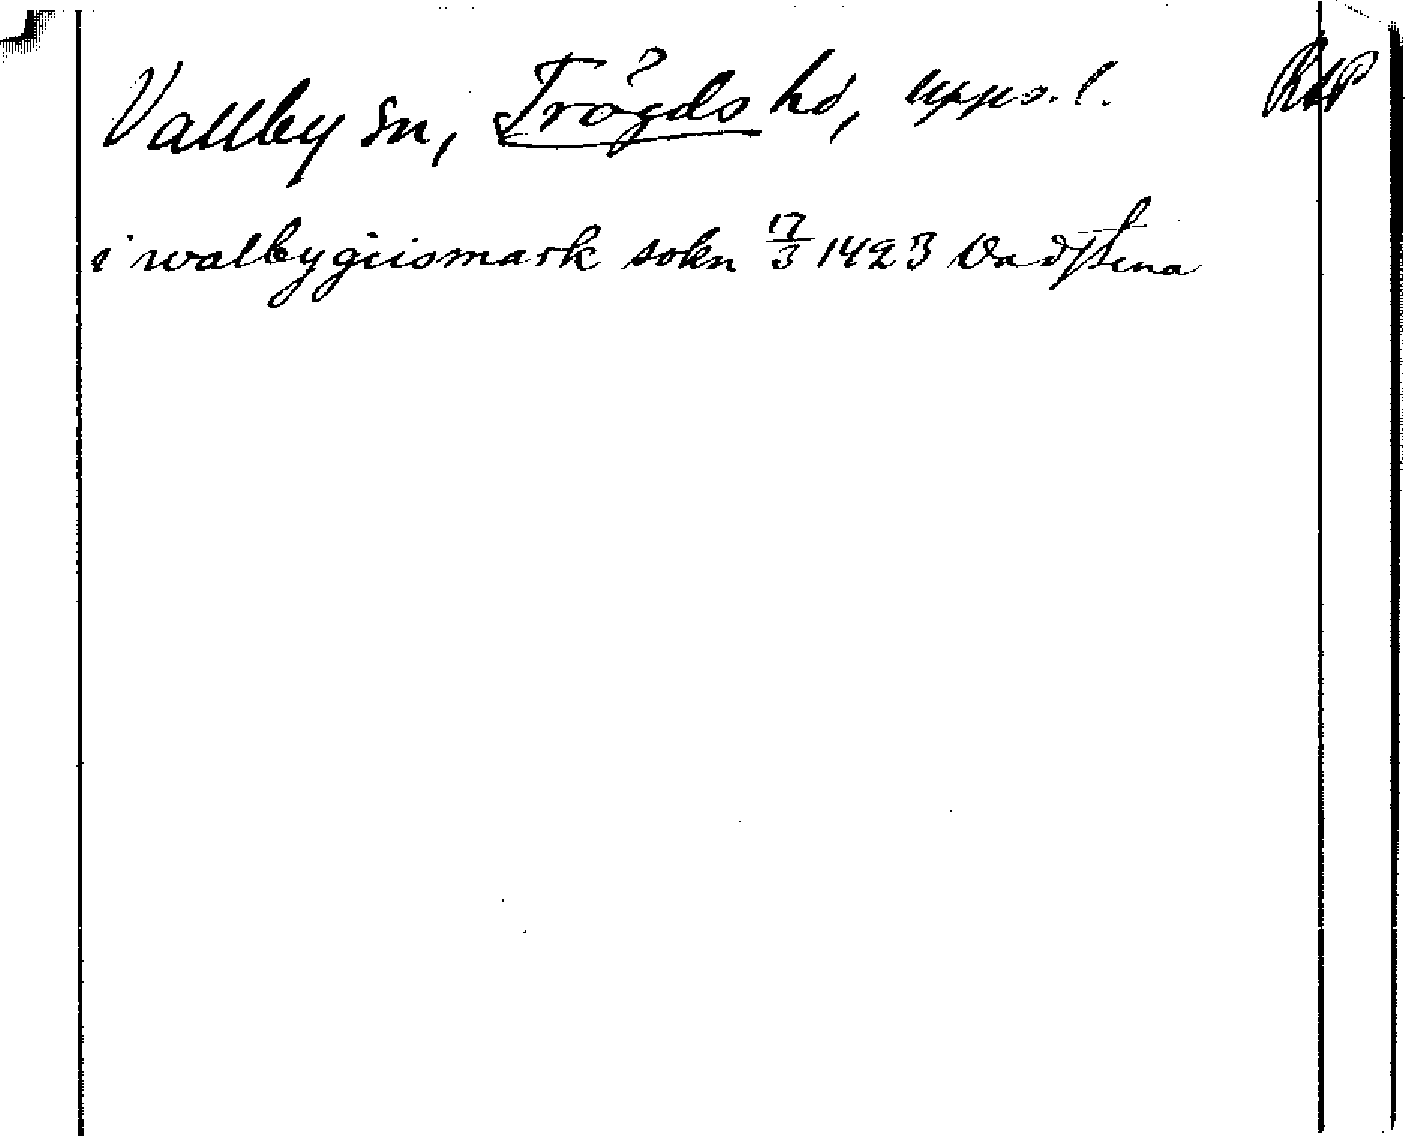 Vallby sn, Trögds hd, Upps. l. RAP
i walbygiismark sokn 17/3 1423 Vadstena